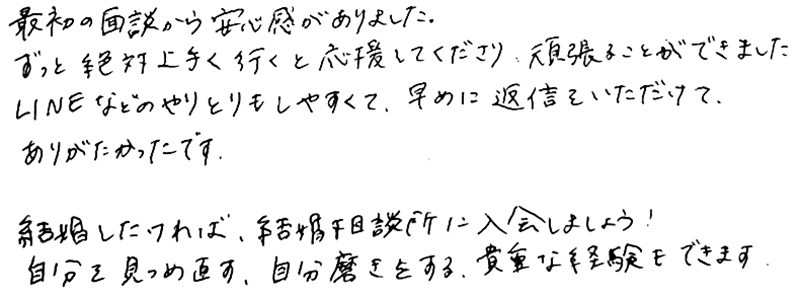 最初の面談から安心感がありました.
ずっと絶対上手く行くと応援してくださり、頑張ることができました
LINEなどのやりとりもしやすくて、早めに返信をいただけて、
ありがたかったです.
結婚したければ、結婚相談所に入会しましょう!
自分を見つめ直す、自分磨きをする、貴重な経験もできます.